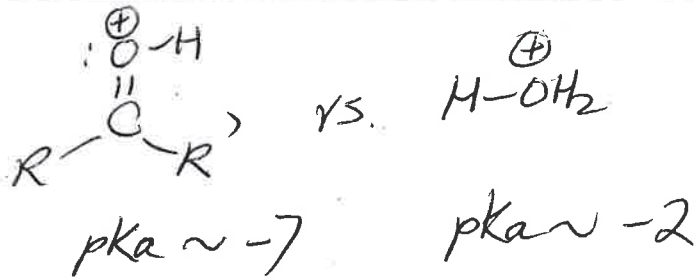 ⊕
:O-H
||
C
R R , vs. H-OH₂ ⊕
pKa ~ -7 pKa ~ -2